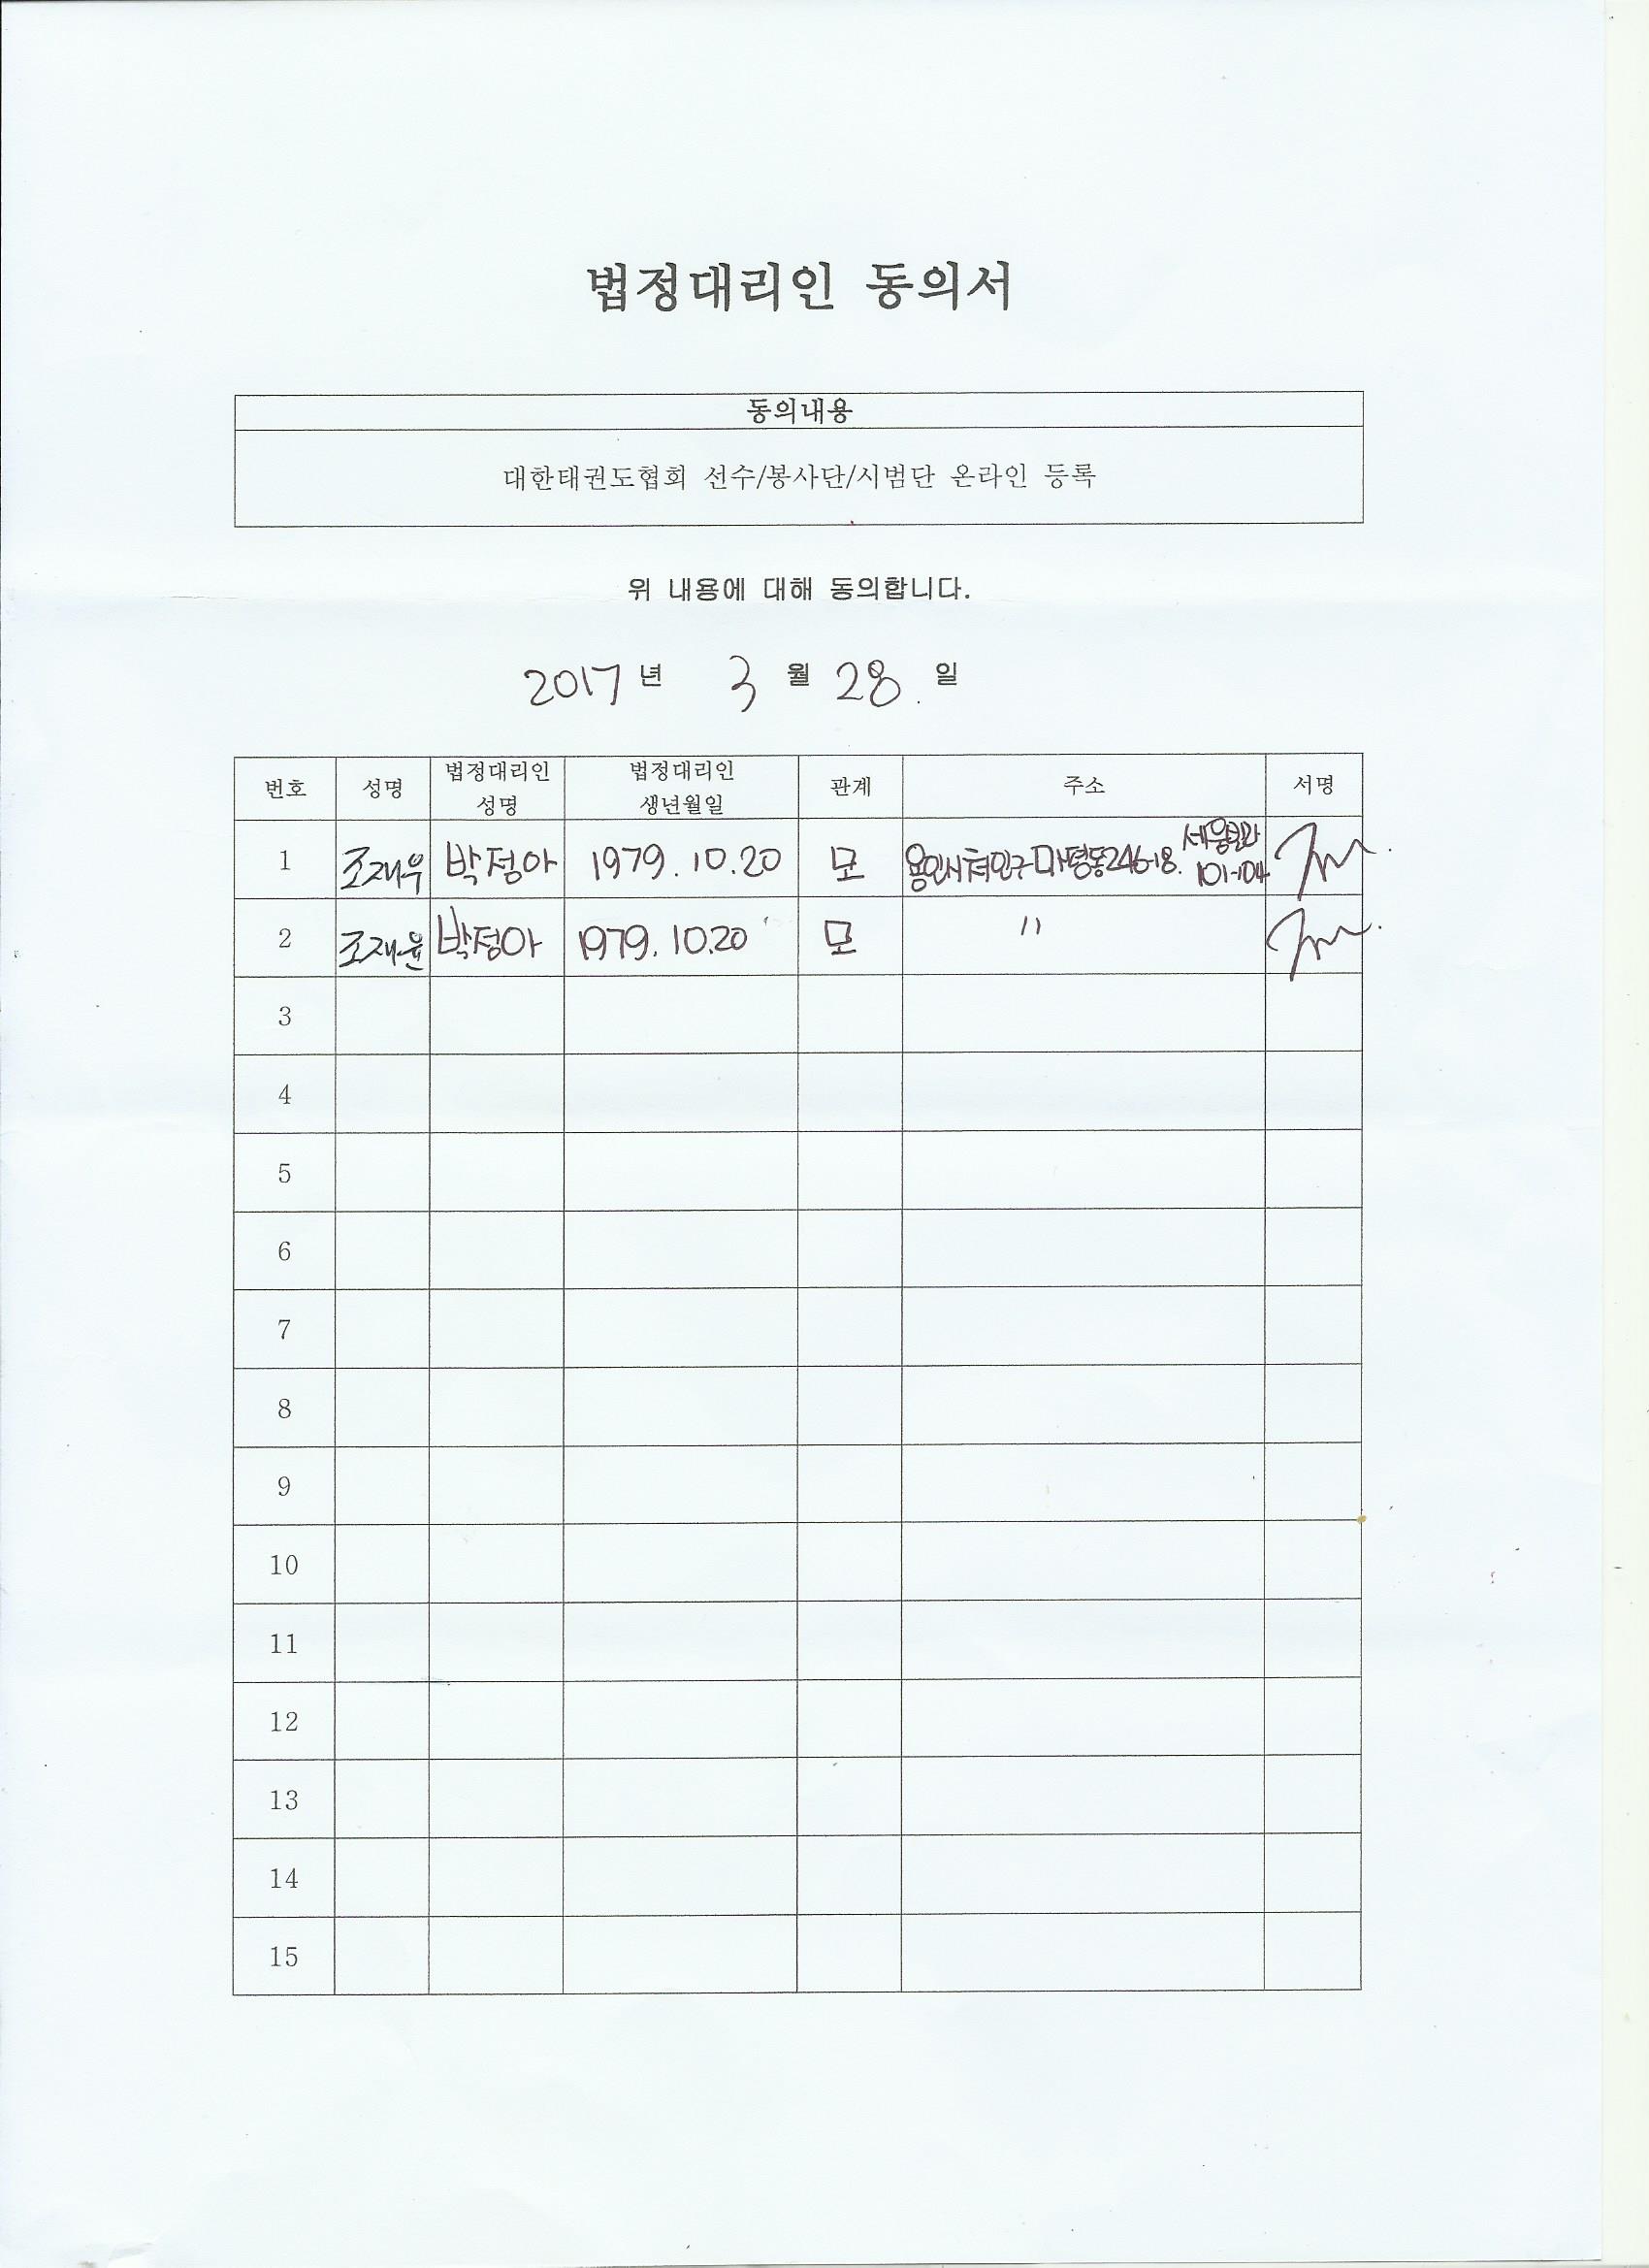 법정대리인 동의서
동의내용
대한태권도협회 선수/봉사단/시범단 온라인 등록
위 내용에 대해 동의합니다.
2017 년 3 월 28. 일
번호 성명 법정대리인 성명 법정대리인 생년월일 관계 주소 서명
1 조재우 박정아 1979.10.20 모 용인시 처인구 마평동 246-18. 세웅빌라 101-104
2 조재윤 박정아 1979.10.20 모 〃
3
4
5
6
7
8
9
10
11
12
13
14
15